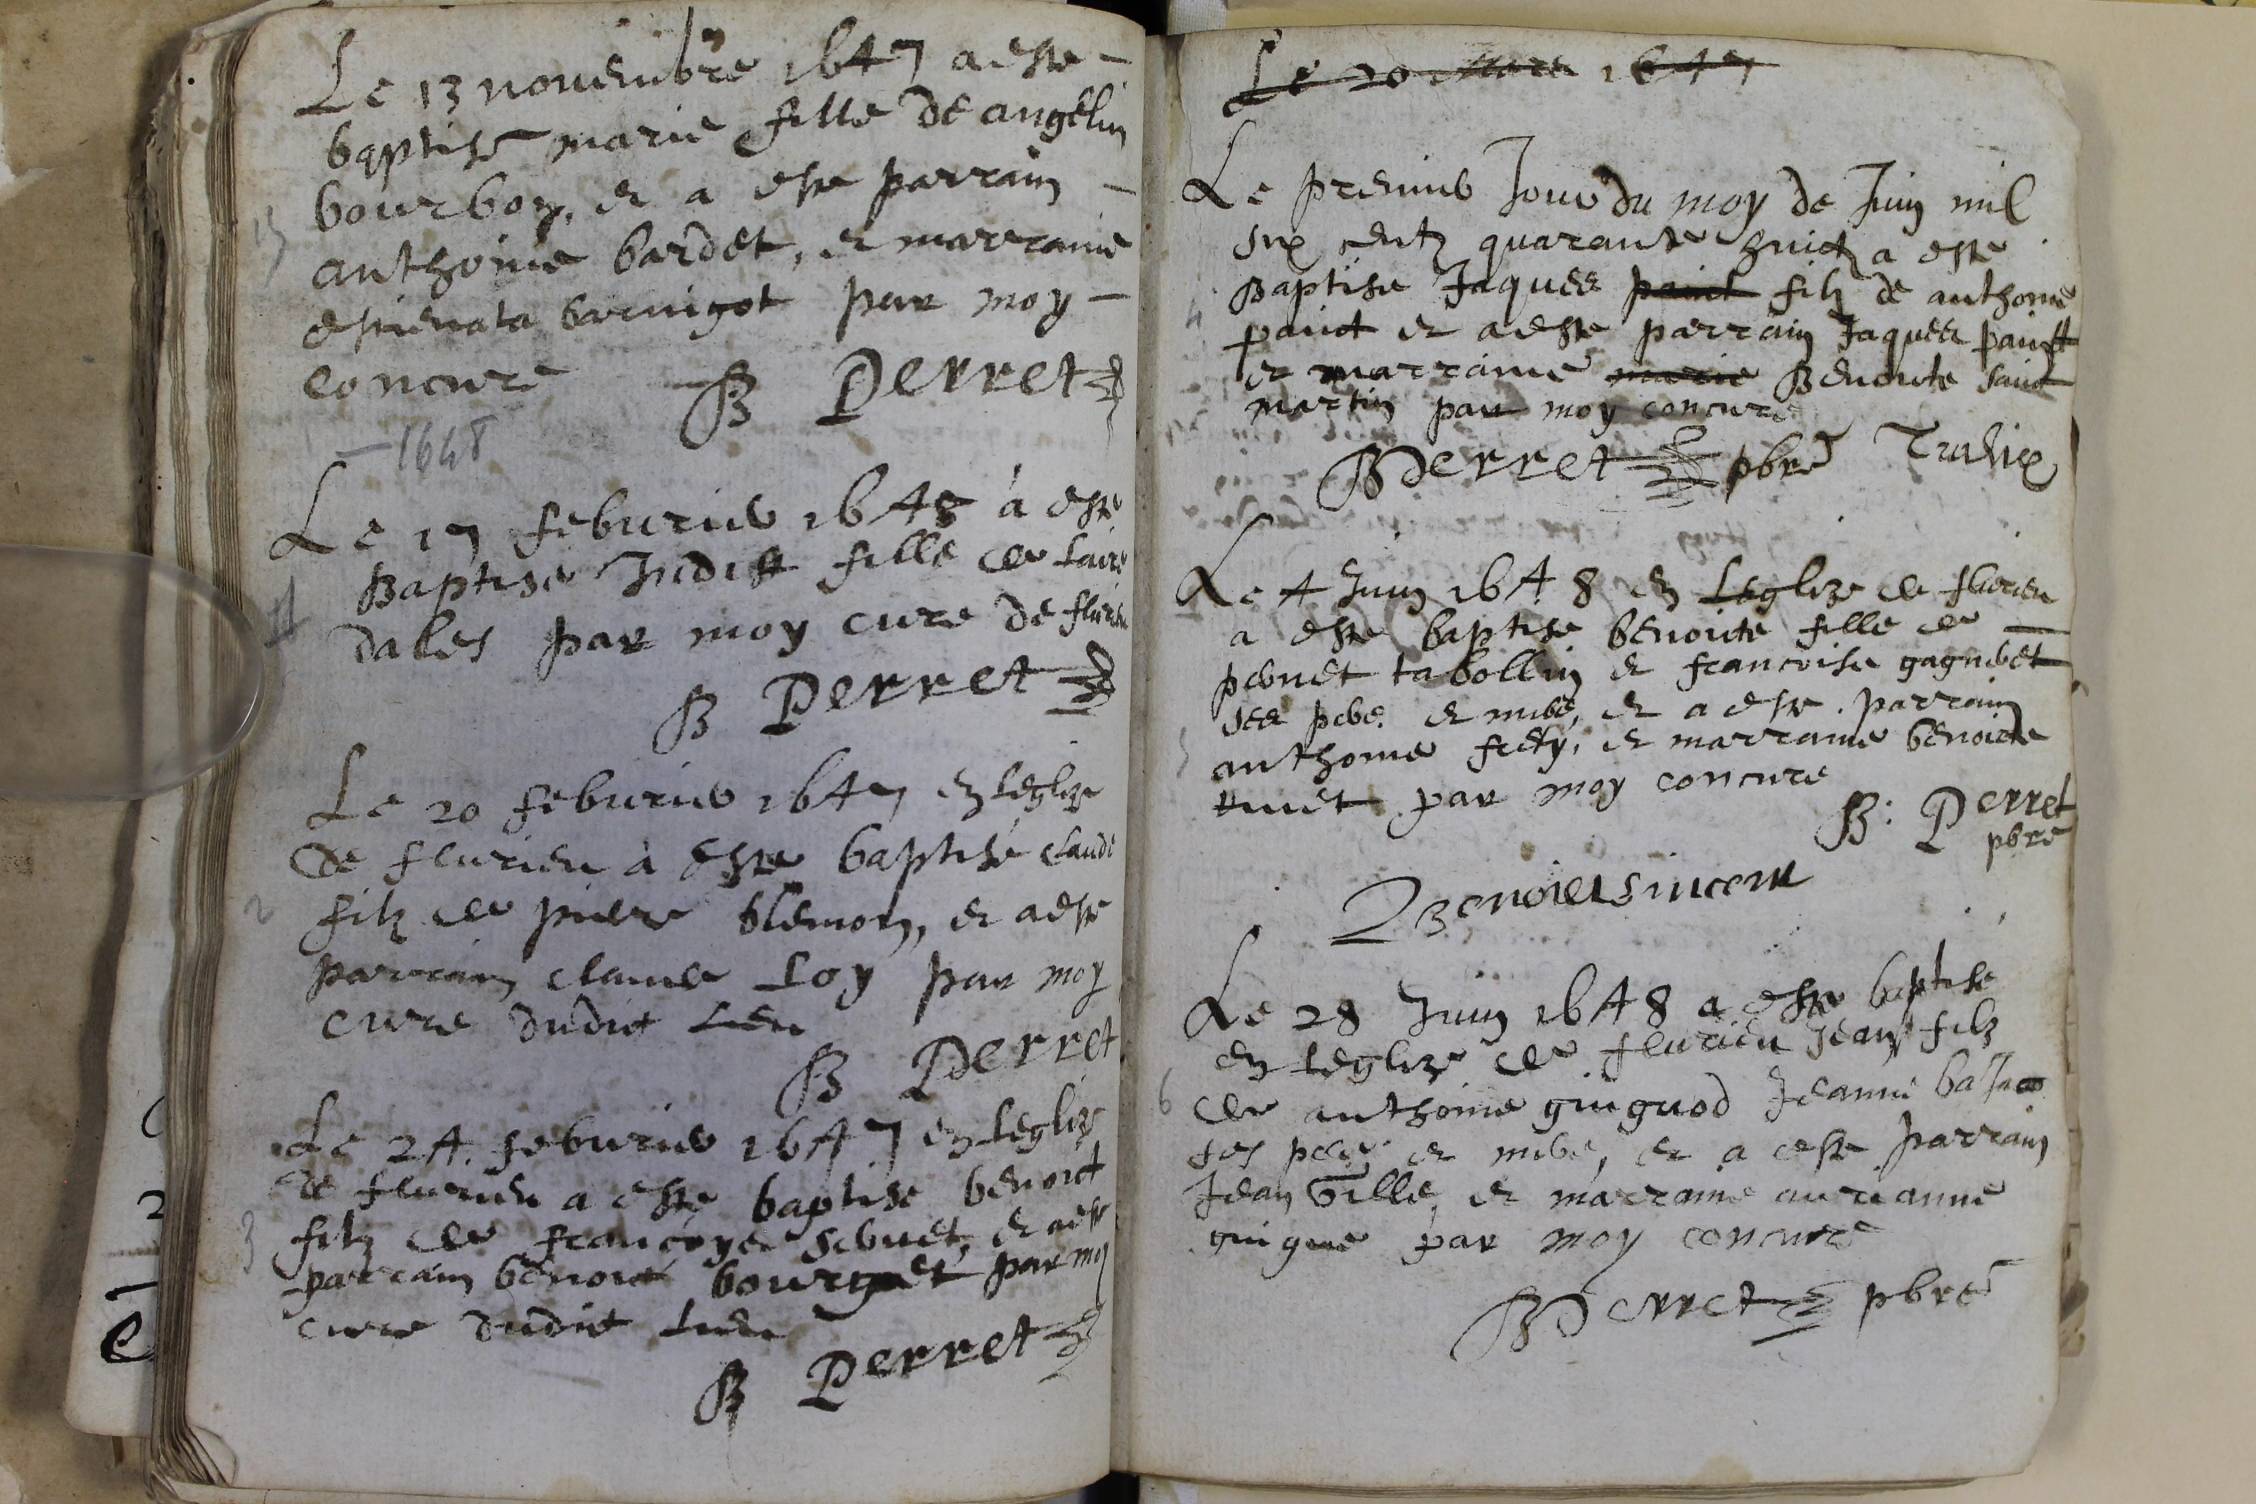 Le 13 novembre 1647 a este
baptise marie fille de angelin
bourbon, et a este parrain
13
anthoine bardet, et marraine
par moy
concure B Perret
1648
Le 17 feburier 1648 a este
Baptise Judict fille de
1
dales par moy cure de flurieu
B Perret
Le 20 feburier 1647 en leglize
de flurieu a este baptisé claude
2
filz de pierre blemon, et a este
parrain claude Loy par moy
cure dudict Lieu
B Perret
Le 24 feburier 1647 en leglize
de flurieu a este baptise benoict
3
filz de francoys et a este
parrain benoict par moy
cure dudict Lieu
B Perret
Le 20 mars 1647
Le premier Jour du moy de Juin mil
six centz quarante huict a este
Baptise Jaques paict filz de anthoine
4
et a este parrain Jaques
et marraine marie Benoite sainct
martin par moy concure
B Perret pbre
Le 4 Juin 1648 en Leglize de flurieu
a este baptise benoite fille de
pernet tabollin et francoise
ses pere et mere, et a este parrain
5
anthoine et marraine benoicte
par moy concure
B: Perret
pbre
Le 28 Juin 1648 a este baptise
en leglize de flurieu Jean filz
6
de anthoine guignod Jeanne
ses pere et mere, et a este parrain
Jean Gille, et marraine
par moy concure
B Perret pbre